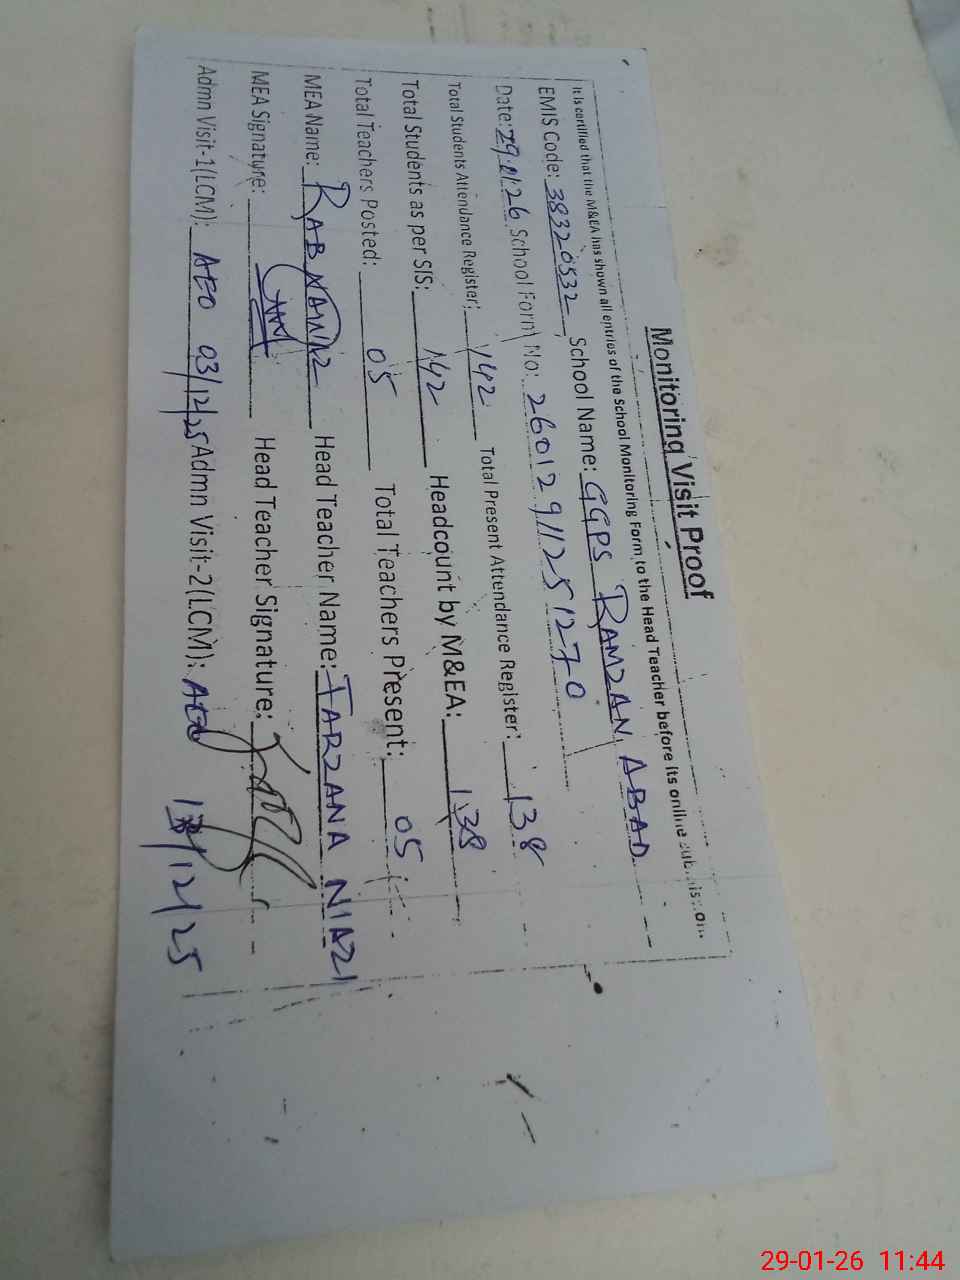 Monitoring Visit Proof
It is certified that the M&EA has shown all entries of the School Monitoring Form to the Head Teacher before its online submission.
EMIS Code: 38320532 School Name: GGPS RAMZAN ABAD
Date: 29.01.26 School Form No: 26012911251270
Total Students Attendance Register: 142 Total Present Attendance Register: 138
Total Students as per SIS: 142 Headcount by M&EA: 138
Total Teachers Posted: 05 Total Teachers Present: 05
MEA Name: RAB NAWAZ Head Teacher Name: TARZANA NIAZI
MEA Signature: Head Teacher Signature:
Admn Visit-1(LCM): AEO 03/12/25 Admn Visit-2(LCM): AEO /12/25
29-01-26 11:44